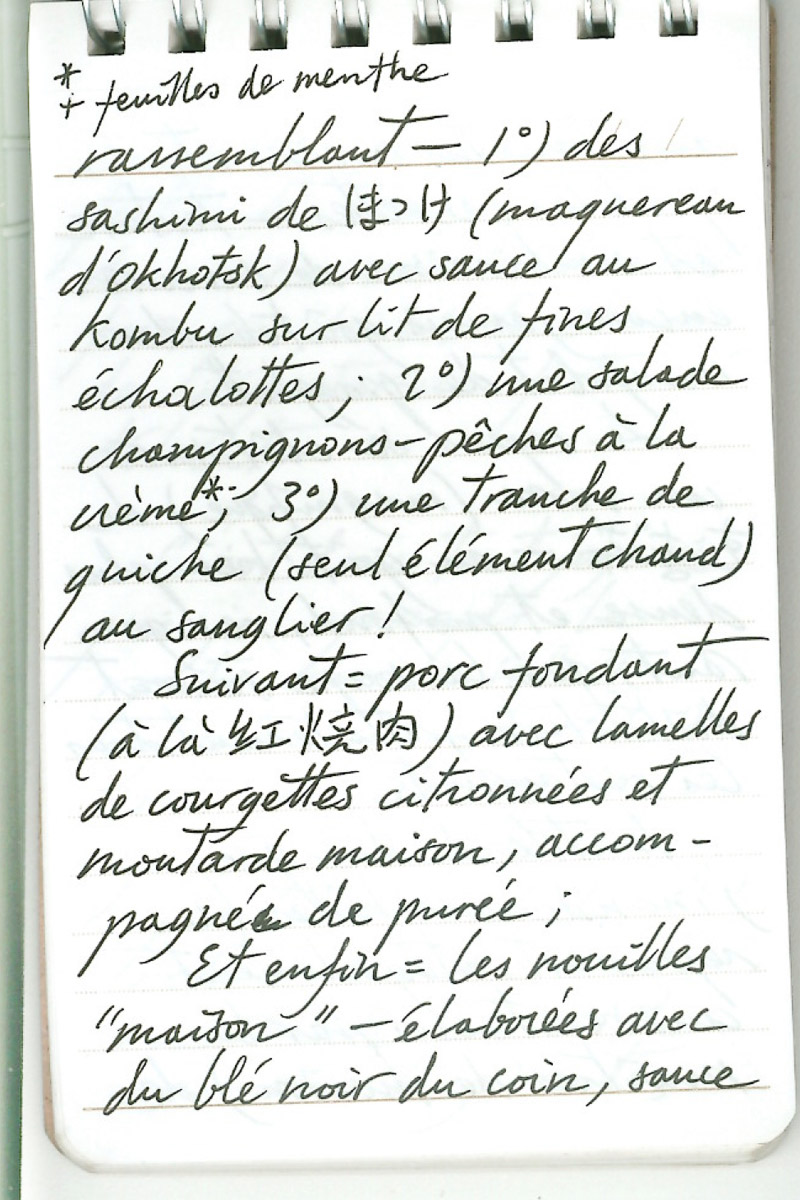 *
+ feuilles de menthe
rassemblant — 1°) des
sashimi de ほっけ (maquereau
d'Okhotsk) avec sauce au
kombu sur lit de fines
échalottes ; 2°) une salade
champignons-pêches à la
crème* ; 3°) une tranche de
quiche (seul élément chaud)
au sanglier !
Suivant = porc fondant
(à là 红烧肉) avec lamelles
de courgettes citronnées et
moutarde maison, accom-
pagnés de purée ;
Et enfin = les nouilles
"maison" — élaborées avec
du blé noir du coin, sauce